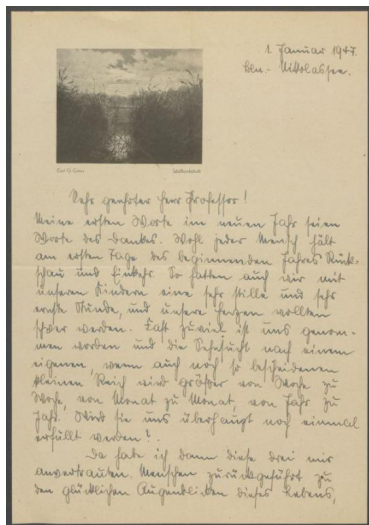 1. Januar 1947.
Bln.- Nikolassee.
Sehr geehrter Herr Professor!
Meine ersten Worte im neuen Jahr seien
Worte des Dankes. Wohl jeder Mensch hält
am ersten Tage des beginnenden Jahres Rück-
schau und Einkehr. So hatten auch wir mit
unseren Kindern eine sehr stille und sehr
ernste Stunde, und unsere Herzen wollten
schwer werden. Fast zuviel ist uns genom-
men worden und die Sehnsucht nach einem
eigenen, wenn auch noch so bescheidenen
kleinen Reich wird größer von Woche zu
Woche, von Monat zu Monat, von Jahr zu
Jahr. Wird sie uns überhaupt noch einmal
erfüllt werden?.
Da habe ich dann diese drei mir
anvertrauten Menschen zurückgeführt zu
den glücklichen Augenblicken dieses Lebens,